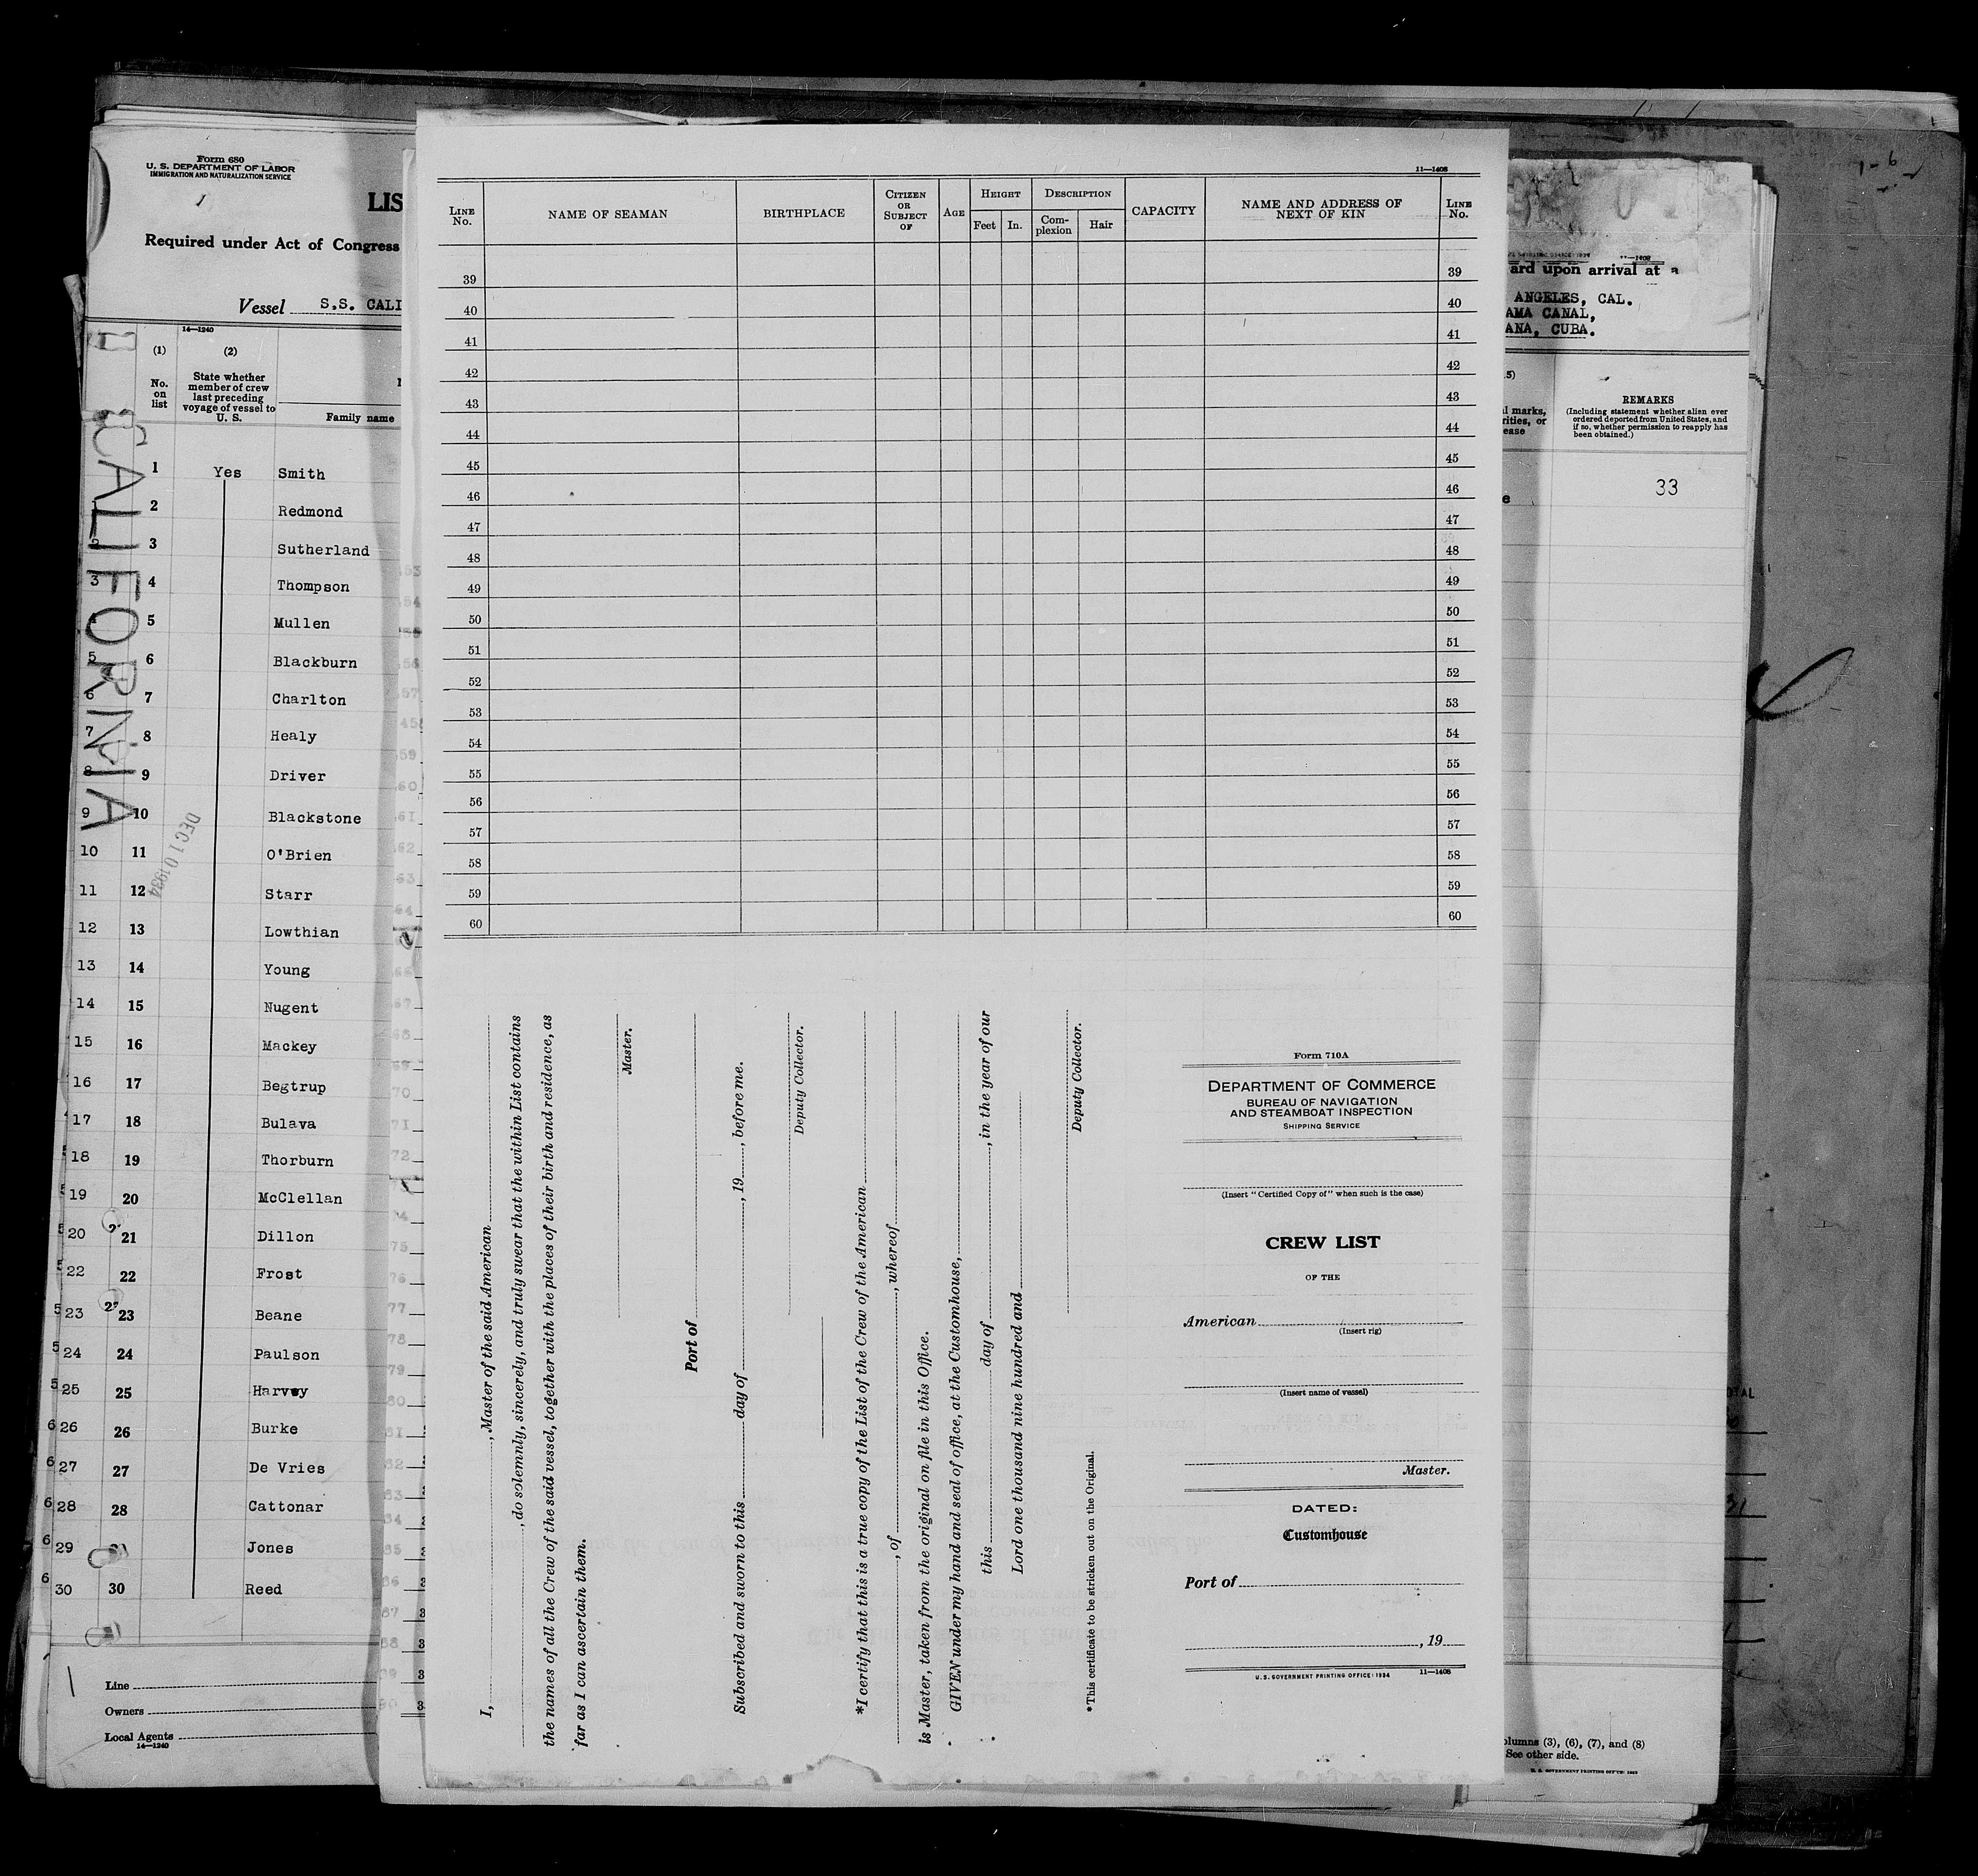 Form 680
U. S. DEPARTMENT OF LABOR
IMMIGRATION AND NATURALIZATION SERVICE
LIS
Required under Act of Congress
Vessel S.S. CALI
14—1240
(1)
(2)
No. on list
State whether member of crew last preceding voyage of vessel to U. S.
Family name
CALIFORNIA
1 Yes Smith
2 Redmond
3 Sutherland
3 4 Thompson
4 5 Mullen
5 6 Blackburn
6 7 Charlton
7 8 Healy
8 9 Driver
9 10 Blackstone
10 11 O'Brien
11 12 Starr
12 13 Lowthian
13 14 Young
14 15 Nugent
15 16 Mackey
16 17 Begtrup
17 18 Bulava
18 19 Thorburn
19 20 McClellan
20 21 Dillon
22 22 Frost
23 23 Beane
24 24 Paulson
25 25 Harvey
26 26 Burke
27 27 De Vries
28 28 Cattonar
29 Jones
30 30 Reed
DEC 10 1934
Line
Owners
Local Agents
14—1240
11—1408
LINE No.
NAME OF SEAMAN
BIRTHPLACE
CITIZEN OR SUBJECT OF
AGE
HEIGHT
Feet
In.
DESCRIPTION
Complexion
Hair
CAPACITY
NAME AND ADDRESS OF NEXT OF KIN
LINE No.
39 39
40 40
41 41
42 42
43 43
44 44
45 45
46 46
47 47
48 48
49 49
50 50
51 51
52 52
53 53
54 54
55 55
56 56
57 57
58 58
59 59
60 60
I, , Master of the said American
, do solemnly, sincerely, and truly swear that the within List contains
the names of all the Crew of the said vessel, together with the places of their birth and residence, as
far as I can ascertain them.
Master.
Port of
Subscribed and sworn to this day of , 19 , before me.
Deputy Collector.
*I certify that this is a true copy of the List of the Crew of the American
, of , whereof
is Master, taken from the original on file in this Office.
GIVEN under my hand and seal of office, at the Customhouse,
this day of , in the year of our
Lord one thousand nine hundred and
Deputy Collector.
*This certificate to be stricken out on the Original.
Form 710A
DEPARTMENT OF COMMERCE
BUREAU OF NAVIGATION
AND STEAMBOAT INSPECTION
SHIPPING SERVICE
(Insert "Certified Copy of" when such is the case)
CREW LIST
OF THE
American
(Insert rig)
(Insert name of vessel)
Master.
DATED:
Customhouse
Port of
, 19
U. S. GOVERNMENT PRINTING OFFICE: 1934 11—1408
ard upon arrival at a
ANGELES, CAL.
AMA CANAL,
ANA, CUBA.
5)
l marks,
rities, or
ease
REMARKS
(Including statement whether alien ever
ordered deported from United States, and
if so, whether permission to reapply has
been obtained.)
33
olumns (3), (6), (7), and (8)
See other side.
U. S. GOVERNMENT PRINTING OFFICE: 1933